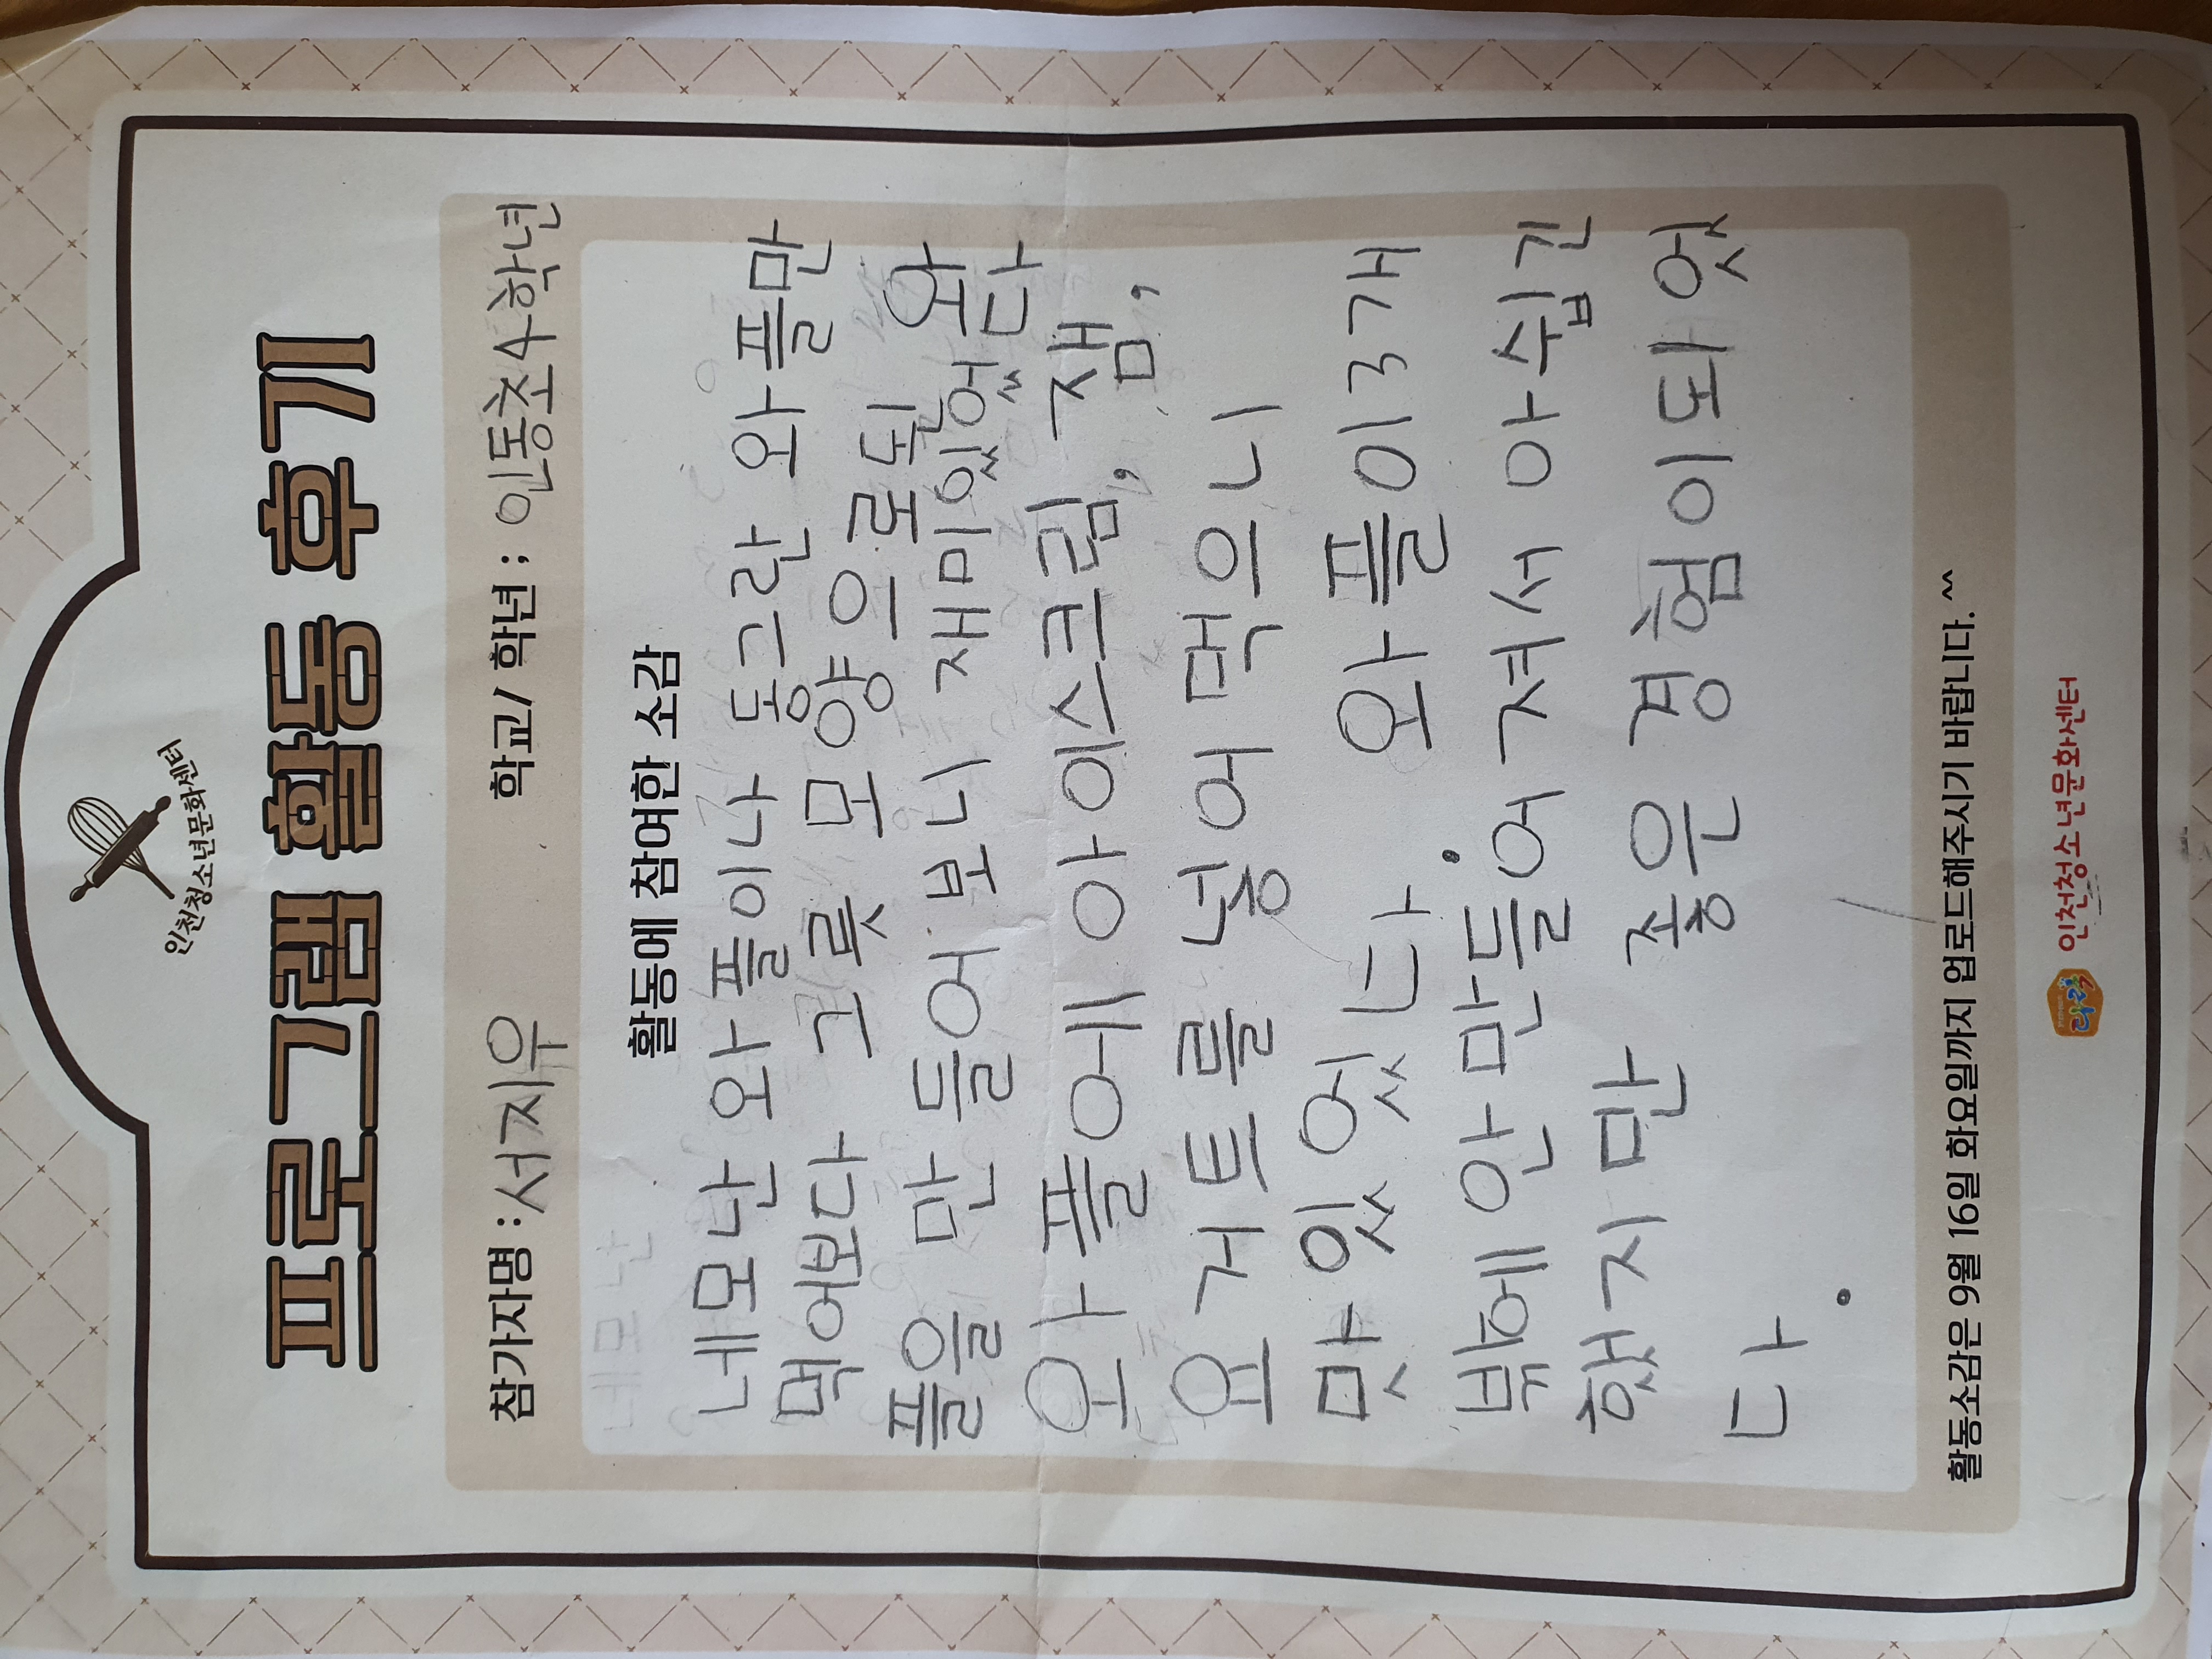 인천청소년문화센터
프로그램 활동 후기
참가자명 : 서지우 학교/ 학년 : 인동초4학년
활동에 참여한 소감
네모난
네모난 와플이나 동그란 와플만
먹어보다 그릇 모양으로된 와
플을 만들어 보니 재미있었다
와플에 아이스크림, 잼,
요거트를 넣어 먹으니
맛있었다. 와플이 3개
밖헤 안 만들어 져서 아쉽긴
했지만 좋은 경험이 돠었
다.
활동소감은 9월 16일 화요일까지 업로드해주시기 바랍니다. ^^
인천청소년문화센터